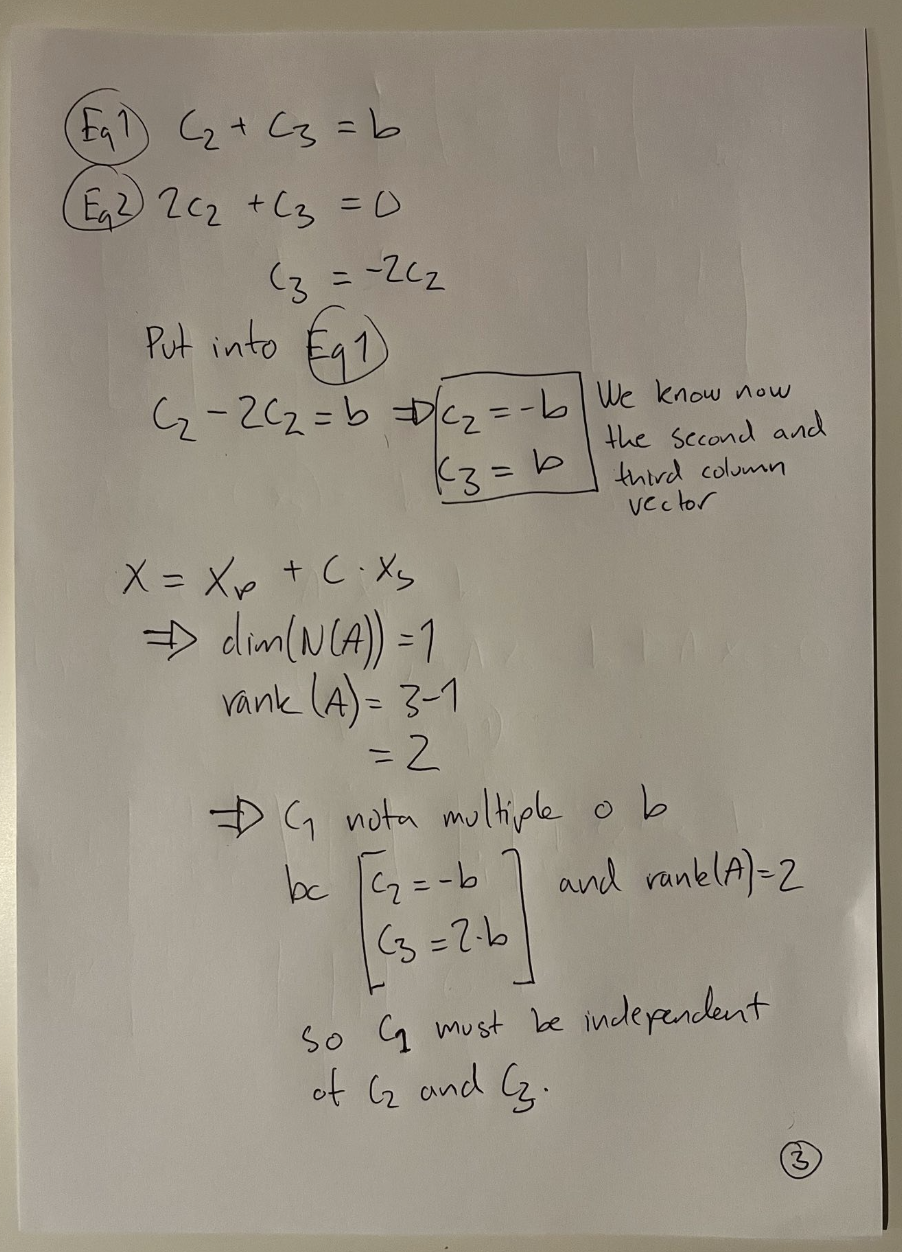 Eq1 C₂ + C₃ = b
Eq2 2C₂ + C₃ = 0
C₃ = -2C₂
Put into Eq1
C₂ - 2C₂ = b ⇒ C₂ = -b
C₃ = b
We know now
the second and
third column
vector
X = Xp + C · Xs
⇒ dim(N(A)) = 1
rank(A) = 3-1
= 2
⇒ C₁ not a multiple o b
bc [C₂ = -b and rank(A)=2
C₃ = 2·b]
so C₁ must be independent
of C₂ and C₃.
3